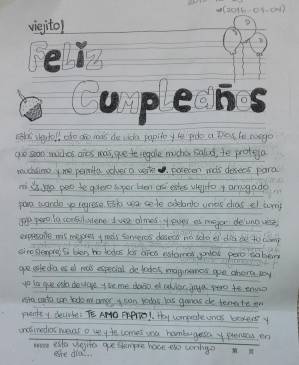 (2016-09-09)
viejito!
Feliz
Cumpleaños
Estas viejito!! otro año mas de vida papito y le pido a Dios, le ruego
que sean muchos años mas, que te regale mucha salud, te proteja
muchisimo y me permita volver a verte ♥. parecen mas deseos para
mi jaja pero te quiero super bien asi estes viejito y arrugado
para cuando yo regrese. Esta vez se te adelanto unos dias el cump
jaja pero la consul viene 1 vez al mes y pues es mejor de una vez
expresarte mis mejores y más sinceros deseos no solo el dia de tu cump
si no siempre, si bien, no todos los años estamos juntos pero sabem
que este dia es el más especial de todos, imaginemos que ahora soy
yo la que esta de viaje y se me daño el celular, jaja pero te envio
esta carta con todo mi amor, y con todas las ganas de tenerte en
frente y decirte: TE AMO PAPITO!. Hoy comprate unos boxers y
unas medias nuevas o ve y te comes una hamburguesa y piensas en
esta viejita que siempre hace eso contigo
este dia...